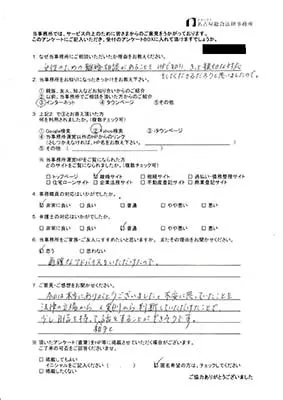 名古屋総合法律事務所
当事務所では、サービス向上のために皆さまからのご意見をうかがっております。
このアンケートにご記入いただき、受付のアンケートBOXに入れて頂けますでしょうか。
1. なぜ当事務所にご相談いただいたかの理由をお教えください。
女性のための離婚相談があることを HPで知り、きっと親切な対応を
してくださるだろうと思いましたので。
2. 当事務所をお知りになったきっかけをお教え下さい。
① 親族、友人、知人などお知り合いからのご紹介
② 以前、当事務所でご相談を頂いた方からのご紹介
③ インターネット ④ タウンページ ⑤ その他
3. 上記2で③とお答え頂いた方
何を利用されましたか。(複数チェック可)
① Google検索 ② Yahoo検索 ③ タウンページ
④ 当事務所運営以外のHPからのリンク
当事務所運営HPをご覧になられた方
どのサイトをご覧になられましたか。(複数チェック可)
□トップページ 離婚サイト □相続サイト □過払い・債務整理サイト
□住宅ローンサイト □企業法務サイト □不動産登記サイト □商業登記サイト
4. 事務職員の対応はいかがでしたか。
非常に良い □良い 普通 □やや悪い □悪い
5. 弁護士の対応はいかがでしたか。
非常に良い □良い □普通 □やや悪い □悪い
6. 当事務所をご家族・ご友人にすすめたいと思いますか。またその理由をお聞かせください。
思う □思わない
適確なアドバイスをいただけたので。
7. ご意見・ご感想をお聞かせください。
今日は本当にありがとうございました。不安に思っていたことを
法律の立場から
少し自信を持って話をすることができそうです。
※ 頂いたアンケート(直筆)をHP等に掲載させていただく場合がございます。
ご了承の可否をご回答くださいませ。
□掲載してもよい
イニシャルをご記入ください( ) 匿名希望の方は、チェックしてください
□掲載したくない
ご協力ありがとうございました